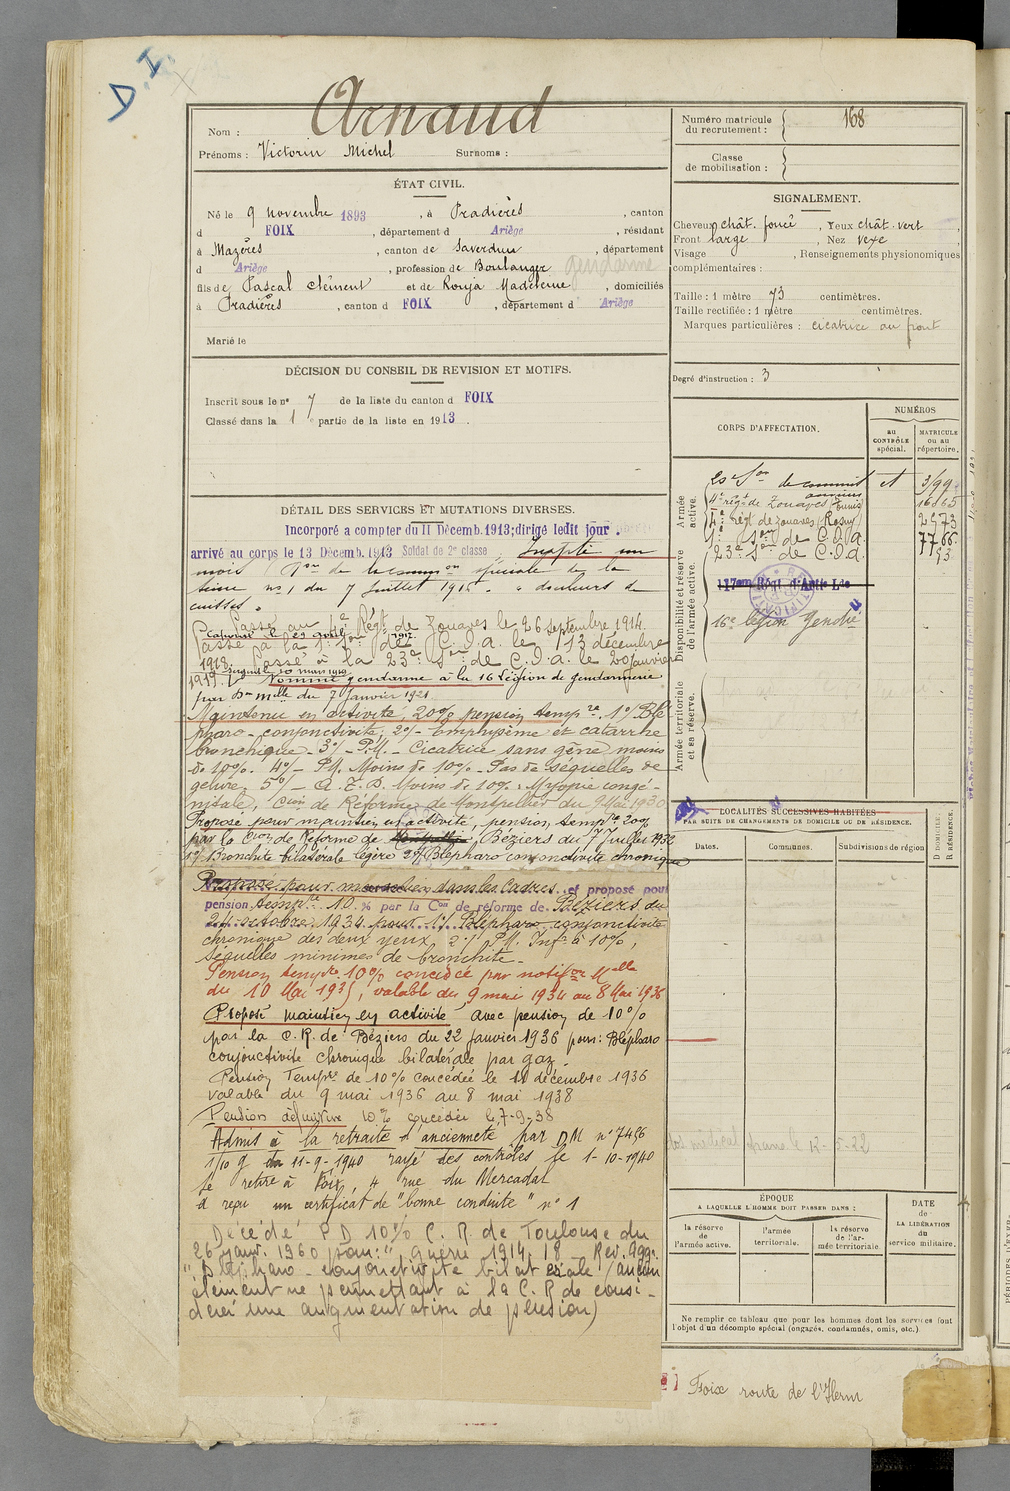 D.I.
Nom : Arnaud
Prénoms : Victorin Michel Surnoms :
ÉTAT CIVIL.
Né le 9 novembre 1893, à Pradières, canton
d FOIX, département d Ariège, résidant
à Mazères, canton de Saverdun, département
d Ariège, profession de Boulanger gendarme
fils de Pascal Clément et de Rouja Madeleine, domiciliés
à Pradières, canton d FOIX, département d Ariège
Marié le
DÉCISION DU CONSEIL DE REVISION ET MOTIFS.
Inscrit sous le no 7 de la liste du canton d FOIX
Classé dans la 1e partie de la liste en 1913.
DÉTAIL DES SERVICES ET MUTATIONS DIVERSES.
Incorporé a compter du 11 Décemb. 1913; dirigé ledit jour.
arrivé au corps le 13 Décemb. 1913 Soldat de 2e classe, Inapte un
mois Con de spéciale de la
no 1 du 7 Juillet 1915. douleurs de
cuisses.
Passé au 4e Régt de Zouaves le 26 septembre 1914.
Caporal le 29 avril 1917.
Passé à la 1e Son de C.O.A. le 13 décembre
1918. Passé à la 23e Son de C.O.A. le 20 Janvier
1919. 10 mars 1919
Nommé gendarme à la 16 Légion de Gendarmerie
par Don mlle du 7 Janvier 1921.
Maintenu en activité, 20% pension tempre. 1o/ Blé
pharo-conjonctivite, 2o/- emphysème et catarrhe
bronchique - 3o/- P.M. - Cicatrice sans gêne moins
de 10%. 4o/- P.M. Moins de 10% - Pas de séquelles de
gelure, 5o/- A.T.D. Moins de 10%. Myopie congé-
nitale, Cion de Réforme de Montpellier du 9 Mai 1930
Proposé pour maintien en activité, pension tempre 20%
par la Cion de Réforme de Béziers du 7 Juillet 1932
1o/ Bronchite bilatérale légère 2o/ Blépharo conjonctivite chronique
Proposé pour maintien dans les Cadres. et proposé pour
pension tempre 10 % par la Con de réforme de Béziers du
24 octobre 1934 pour 1o/ Blépharo conjonctivite
chronique des deux yeux, 2o/ P.M. Infre à 10%,
séquelles minimes de bronchite -
Pension tempre 10% concédée par notifon Mlle
du 10 Mai 1935, valable du 9 mai 1934 au 8 Mai 1936
Proposé maintien en activité avec pension de 10%
par la C.R. de Béziers du 22 janvier 1936 pour: Blépharo
conjonctivite chronique bilatérale par gaz.
Pension Tempre de 10% concédée le 11 décembre 1936
valable du 9 mai 1936 au 8 mai 1938
Pension définitive 10% concédée le 7-9-38
Admis à la retraite d'ancienneté par DM no 7456
du 11-9-1940 rayé des contrôles le 1-10-1940
se retire à Foix, 4 rue du Mercadal
a reçu un certificat de "bonne conduite" no 1
Décédé P D 10% C. R. de Toulouse du
26 janv. 1960 pour: "guerre 1914 18 - Rev. Agg.
"Blépharo-conjonctivite bilatérale (aucun
élément ne permettant à la C.R de consi-
dérer une augmentation de pension)
Numéro matricule
du recrutement : 168
Classe
de mobilisation :
SIGNALEMENT.
Cheveux chât. foncé, Yeux chât. vert,
Front large, Nez vexe,
Visage, Renseignements physionomiques
complémentaires :
Taille : 1 mètre 73 centimètres.
Taille rectifiée : 1 mètre centimètres.
Marques particulières : cicatrice au front
Degré d'instruction : 3
CORPS D'AFFECTATION.
NUMÉROS
au
CONTRÔLE
spécial.
MATRICULE
ou au
répertoire.
Armée
active.
4e régt de Zouaves (Tunis)
4e régt de zouaves (Rosny) 2573
1e Son de C.O.A. 7766
23e Son de C.O.A. 53
Disponibilité et réserve
de l'armée active.
117em Régt d'Artie Lde
RECTIFICATION
16e légion Gendie
Armée territoriale
et sa réserve.
LOCALITÉS SUCCESSIVES HABITÉES
PAR SUITE DE CHANGEMENTS DE DOMICILE OU DE RÉSIDENCE.
Dates.
Communes.
Subdivisions de région
D DOMICILE.
R RÉSIDENCE.
ÉPOQUE
À LAQUELLE L'HOMME DOIT PASSER DANS :
la réserve
de
l'armée active.
l'armée
territoriale.
la réserve
de l'ar-
mée territoriale.
DATE
de
LA LIBÉRATION
du
service militaire.
Ne remplir ce tableau que pour les hommes dont les services font
l'objet d'un décompte spécial (engagés, condamnés, omis, etc.).
Foix route de l'Herm